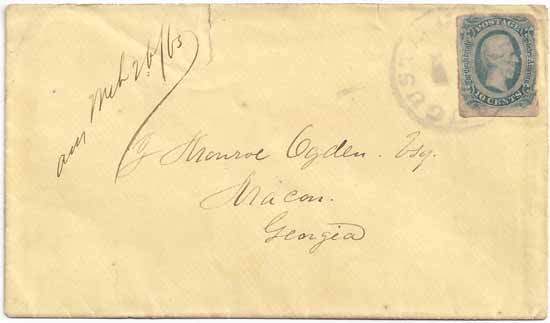 POSTAGE
10 CENTS
GUST
ans Mch 26/63
J Monroe Ogden. Esq.
Macon.
Georgia